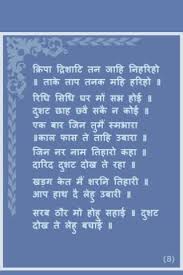 क्रिपा द्रिशाटि तन जाहि निहरिहो
॥ ताके ताप तनक महि हरिहो ॥
रिधि सिधि घर मों सभ होई ॥
दुशट छाह छ्वै सकै न कोई ॥
एक बार जिन तुमैं स्मभारा
॥काल फास ते ताहि उबारा ॥
जिन नर नाम तिहारो कहा ॥
दारिद दुशट दोख ते रहा ॥
खड़ग केत मैं शरनि तिहारी ॥
आप हाथ दै लेहु उबारी ॥
सरब ठौर मो होहु सहाई ॥ दुशट
दोख ते लेहु बचाई ॥
(8)